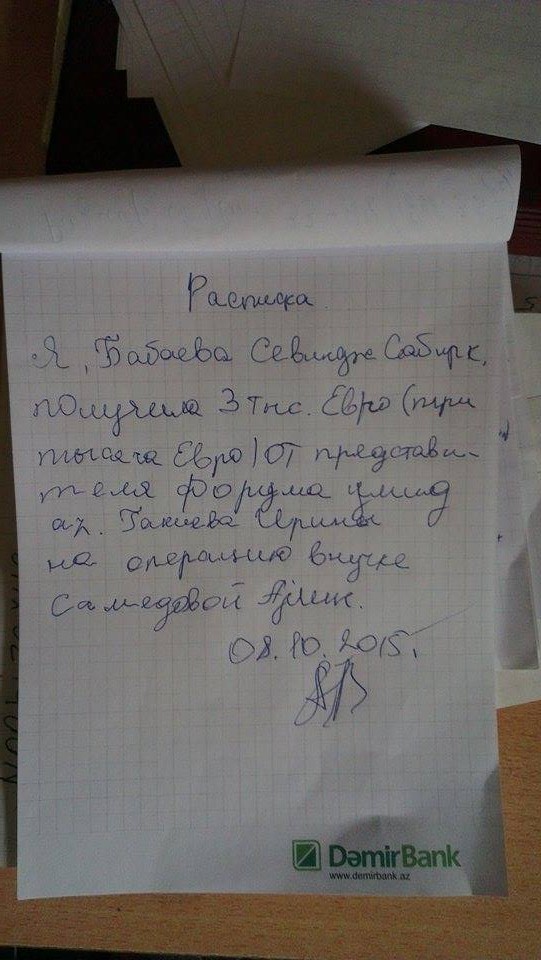 Расписка.
Я, Бабаева Севиндж Сабирк.
получила 3 тыс. Евро (три
тысяча Евро) от представи-
теля Форума умид
az. Гакиева Ирины
на операцию внучке
Самедовой
08.10.2015.
DəmirBank
www.demirbank.az